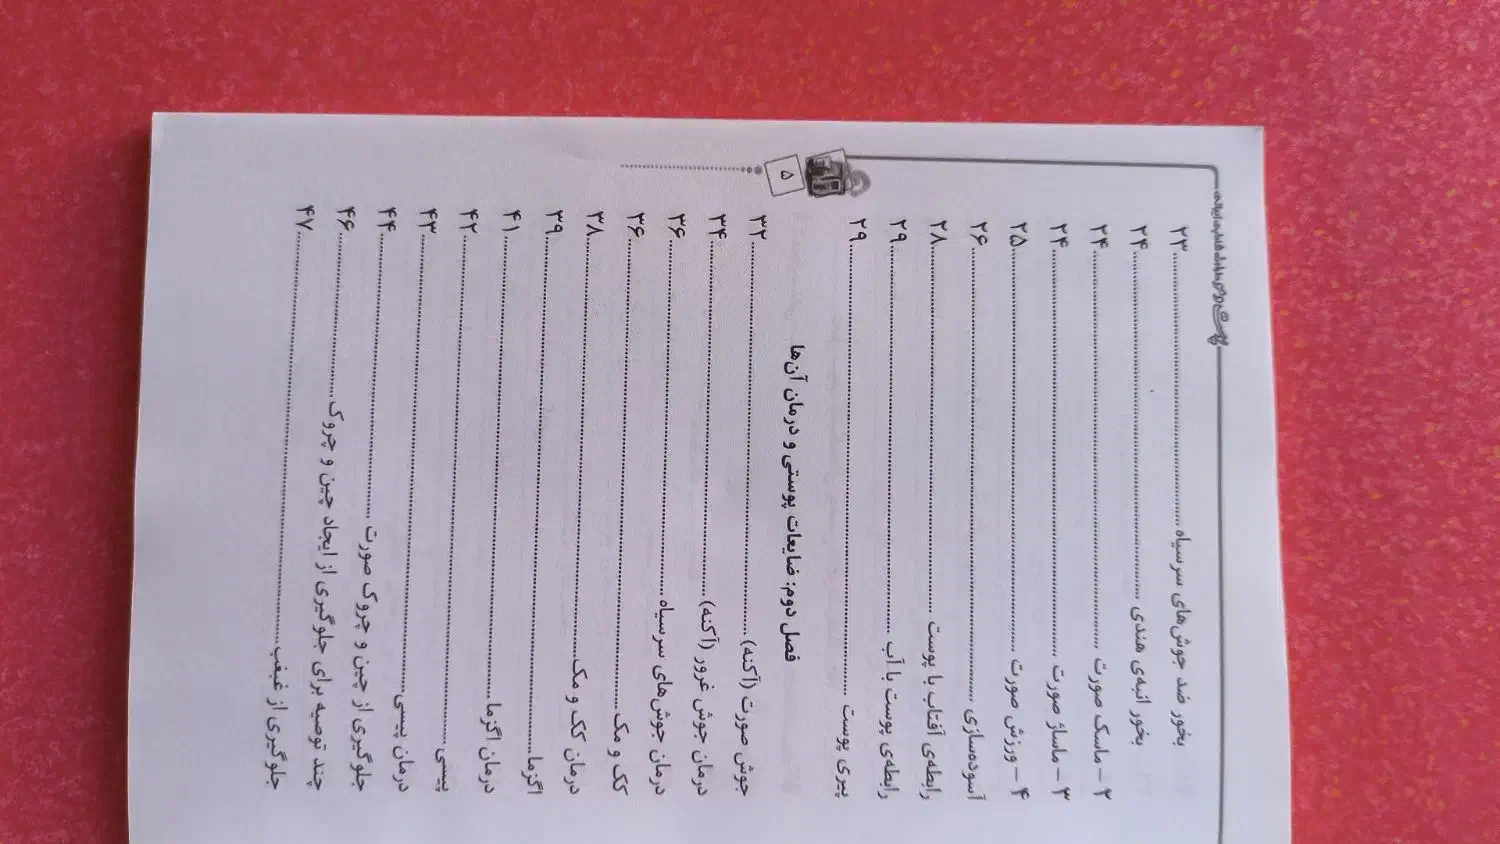 ۵
بخور ضد جوش‌های سرسیاه ........ ۲۳
بخور انبه‌ی هندی ........ ۲۴
۲ – ماسک صورت ........ ۲۴
۳ – ماساژ صورت ........ ۲۴
۴ – ورزش صورت ........ ۲۵
آسوده‌سازی ........ ۲۶
رابطه‌ی آفتاب با پوست ........ ۲۸
رابطه‌ی پوست با آب ........ ۲۹
پیری پوست ........ ۲۹
فصل دوم: ضایعات پوستی و درمان آن‌ها
جوش صورت (آکنه) ........ ۳۲
درمان جوش غرور (آکنه) ........ ۳۴
درمان جوش‌های سرسیاه ........ ۳۶
کک و مک ........ ۳۶
درمان کک و مک ........ ۳۸
اگزما ........ ۳۹
درمان اگزما ........ ۴۱
پیسی ........ ۴۲
درمان پیسی ........ ۴۳
جلوگیری از چین و چروک صورت ........ ۴۴
چند توصیه برای جلوگیری از ایجاد چین و چروک ........ ۴۶
جلوگیری از غبغب ........ ۴۷